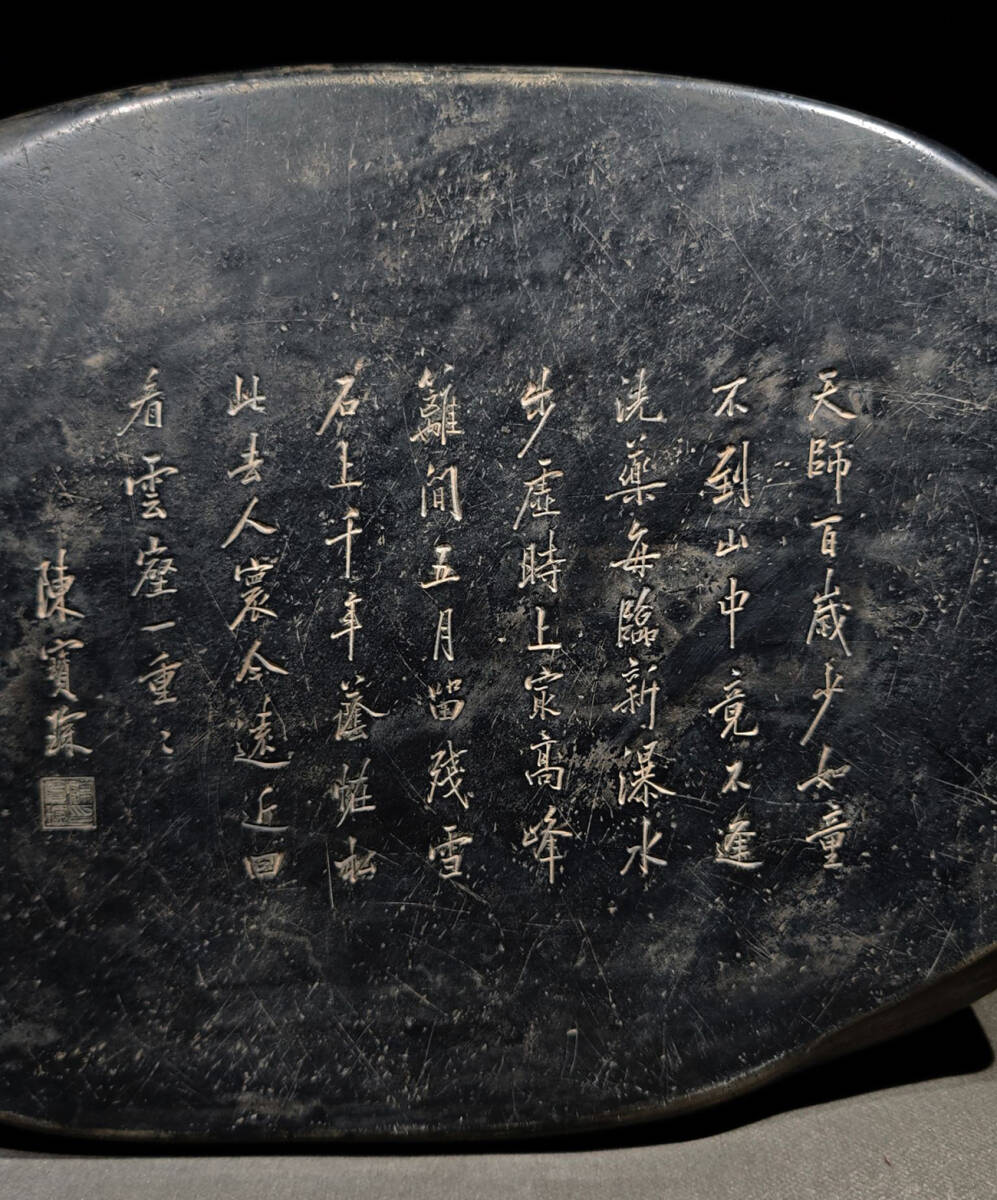 天師百歲少如童
不到山中竟不逢
洗藥每臨新瀑水
步虛時上㝡高峰
籬間五月留殘雪
石上千年蔭恠松
此去人寰今遠近回
看雲壑一重〻
陳寶琛